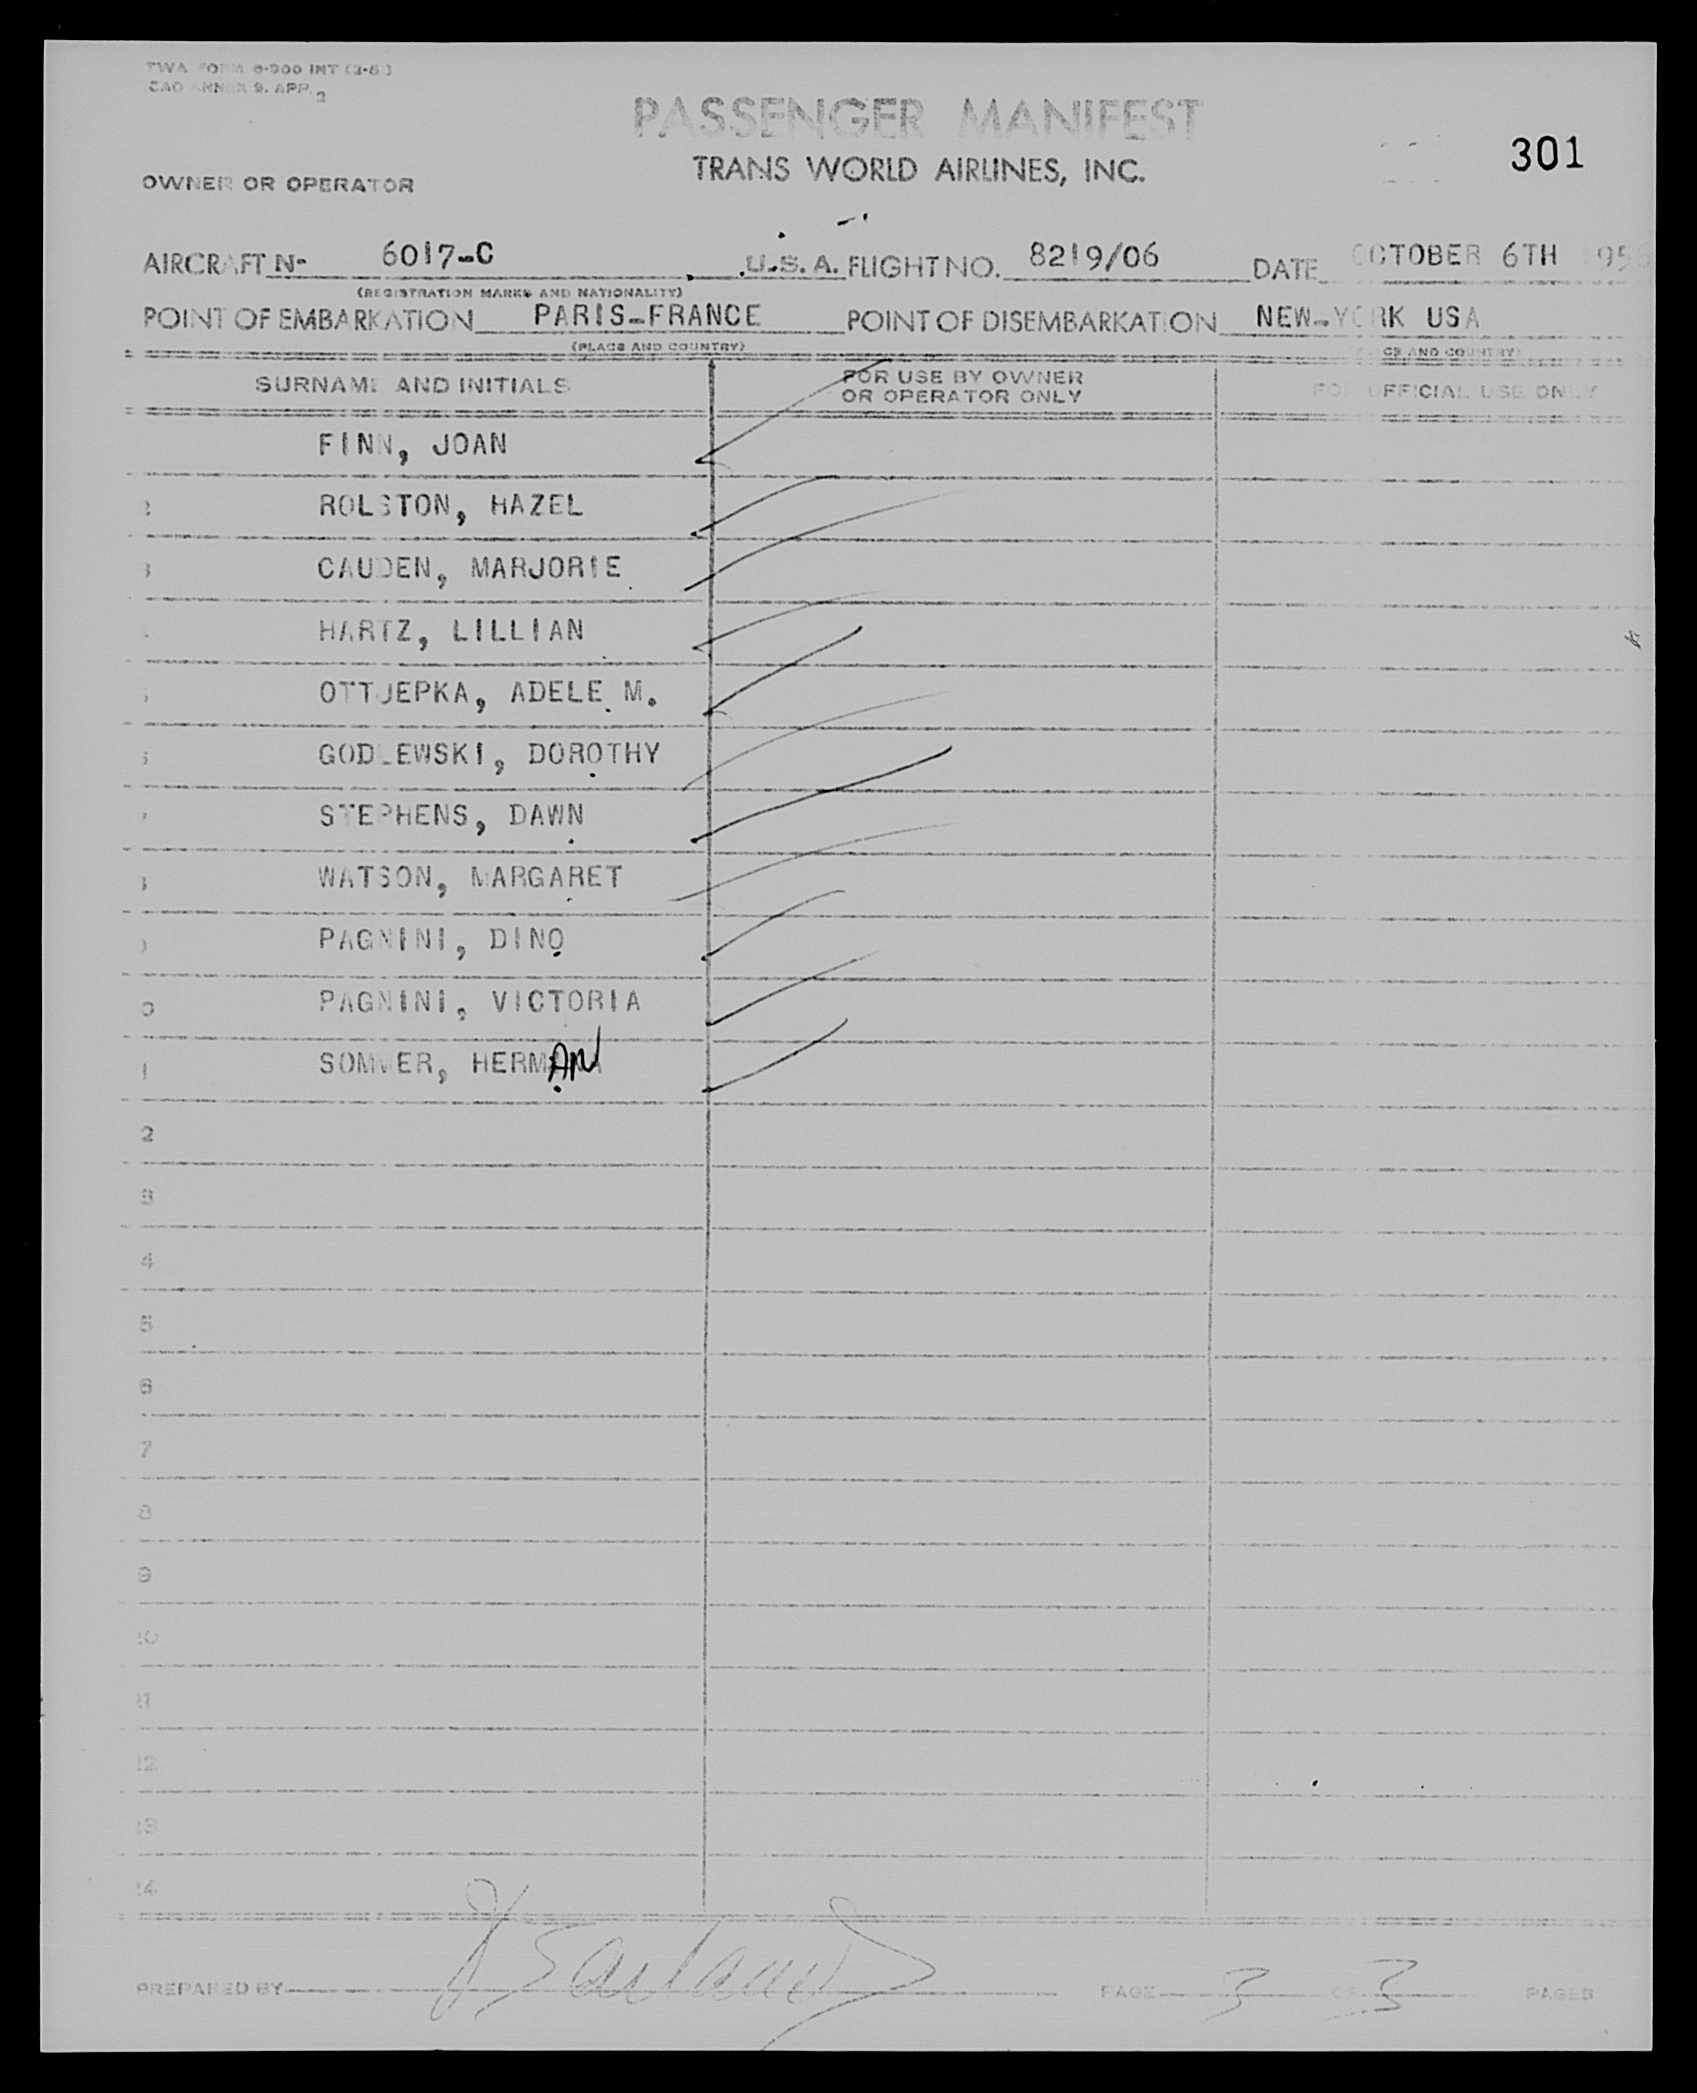 TWA FORM
ANNEX 9. APP. 2
PASSENGER MANIFEST
301
TRANS WORLD AIRLINES, INC.
OWNER OR OPERATOR
AIRCRAFT Nº 6017-C U.S.A. FLIGHT NO. 8219/06 DATE OCTOBER 6TH 1956
(REGISTRATION MARKS AND NATIONALITY)
POINT OF EMBARKATION PARIS-FRANCE POINT OF DISEMBARKATION NEW-YORK USA
(PLACE AND COUNTRY) (PLACE AND COUNTRY)
SURNAME AND INITIALS FOR USE BY OWNER OR OPERATOR ONLY FOR OFFICIAL USE ONLY
FINN, JOAN
2 ROLSTON, HAZEL
3 CAUDEN, MARJORIE
HARTZ, LILLIAN
5 OTTJEPKA, ADELE M.
6 GODLEWSKI, DOROTHY
7 STEPHENS, DAWN
8 WATSON, MARGARET
9 PAGNINI, DINO
0 PAGNINI, VICTORIA
1 SOMMER, HERMAN
2
3
4
5
6
7
8
9
20
21
22
23
24
PREPARED BY PAGE 3 OF 3 PAGES